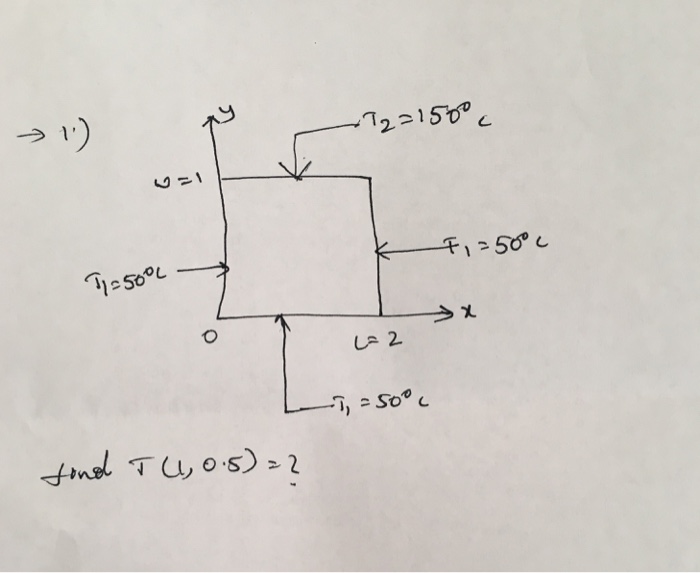 → 1.)
y
T2 = 150° C
W = 1
T1 = 50° C
T1 = 50° C
0
L = 2
x
T1 = 50° C
find T (1, 0.5) = ?